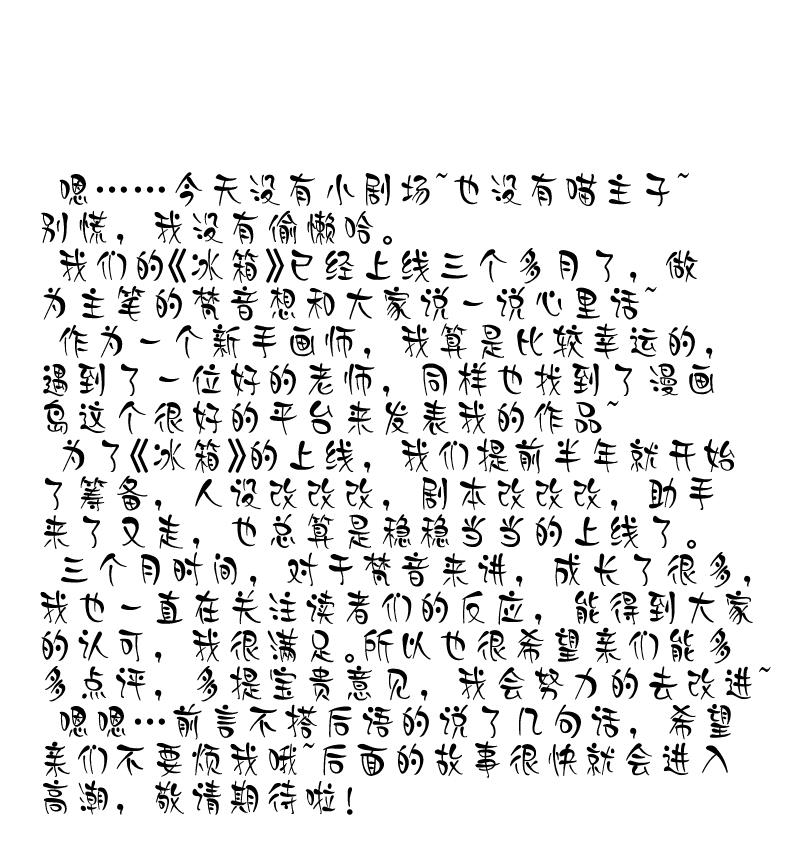 嗯……今天没有小剧场~也没有喵主子~
别慌，我没有偷懒哈。
我们的《冰箱》已经上线三个多月了，做
为主笔的梵音想和大家说一说心里话~
作为一个新手画师，我算是比较幸运的，
遇到了一位好的老师，同样也找到了漫画
岛这个很好的平台来发表我的作品~
为了《冰箱》的上线，我们提前半年就开始
了筹备，人设改改改，剧本改改改，助手
来了又走，也总算是稳稳当当的上线了。
三个月时间，对于梵音来讲，成长了很多，
我也一直在关注读者们的反应，能得到大家
的认可，我很满足。所以也很希望亲们能多
多点评，多提宝贵意见，我会努力的去改进~
嗯嗯…前言不搭后语的说了几句话，希望
亲们不要烦我哦~后面的故事很快就会进入
高潮，敬请期待啦！